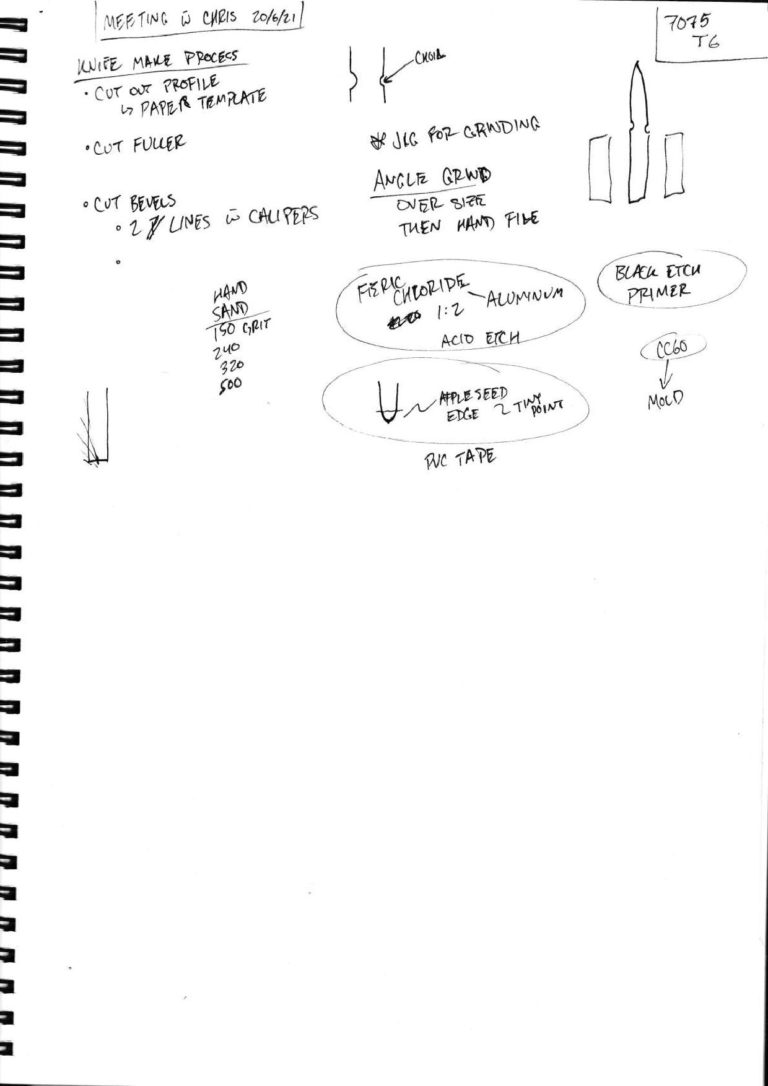 MEETING w̄ CHRIS 20/6/21
7075
T6
KNIFE MAKE PROCESS
• CUT OUT PROFILE
↳ PAPER TEMPLATE
• CUT FULLER
• CUT BEVELS
• 2 LINES w̄ CALIPERS
•
CHOIL
* JIG FOR GRINDING
ANGLE GRIND
OVER SIZE
THEN HAND FILE
HAND
SAND
150 GRIT
240
320
500
FERIC
CHLORIDE
ALUMINUM
1:2
ACID ETCH
APPLESEED
EDGE 2 TINY
POINT
PVC TAPE
BLACK ETCH
PRIMER
CC60
MOLD